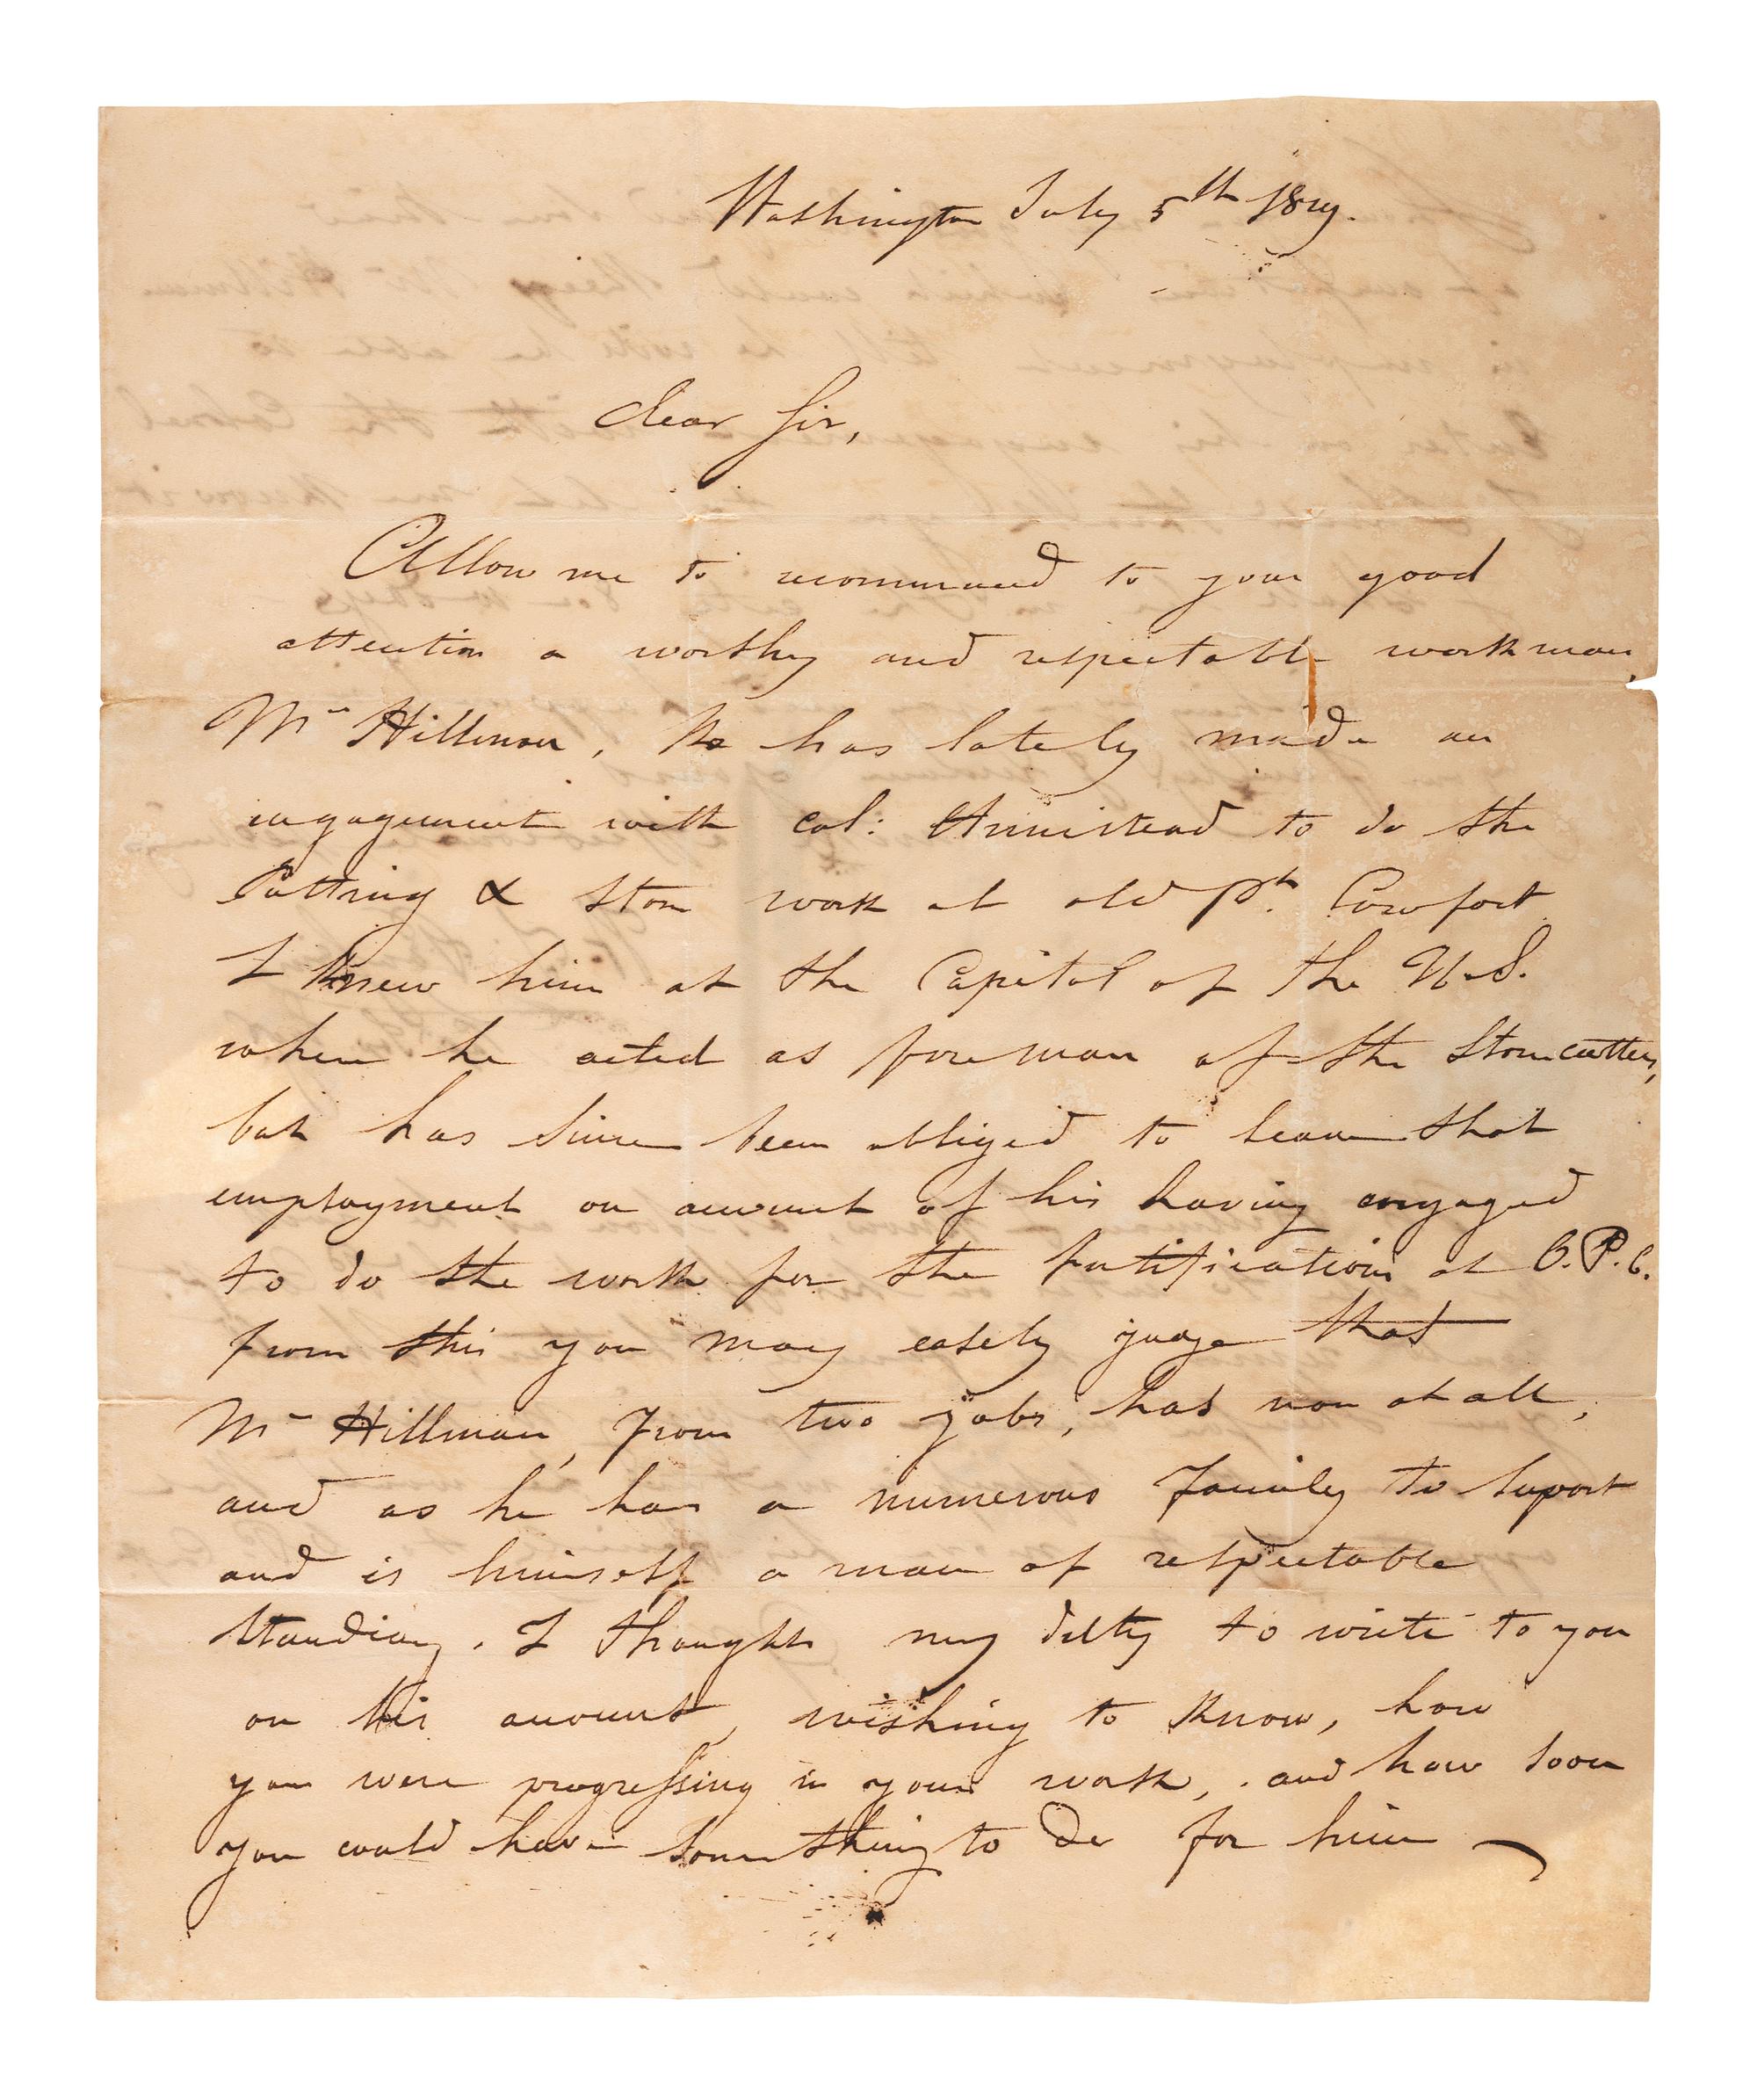 Washington July 5th 1819.
dear Sir,
Allow me to recommend to your good
attention a worthy and respectable workman,
Mr Hillman, he has lately made an
engagement with col: Armistead to do the
Cutting & Stone work at old Pt. Comfort
I knew him at the Capitol of the U.S.
where he acted as foreman of the Stonecutters,
but has Since been obliged to leave that
employment on account of his having engaged
to do the work for the fortifications at O.P.C.
from this you may easely juge that
Mr Hillman, from two jobs, has non at all,
and as he has a numerous family to Suport
and is himself a man of respectable
Standing. I thought my duty to write to you
on this account, wishing to know, how
you were progressing in your work, and how Soon
you could have Something to do for him